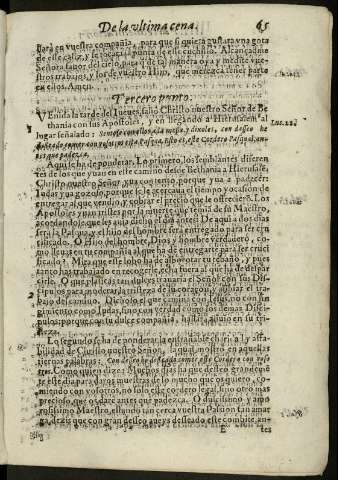 De la ultima cena. 65
llarà en vuestra compañia, para que si quiera gustara una gota
de este caliz, y le tocara la punta de este cuchillo. Alcançadme
Señora favor del cielo, para q̃ de tal manera oya y medite vues-
tros trabajos, y los de vuestro Hijo, que merezca tener parte
en ellos. Amen.
Tercero punto.
Venida la tarde del Iueves, salio Christo nuestro Señor de Be-
thania con sus Apostoles, y en llegando a Hierusalem al
lugar señalado: Sentose con ellos a la mesa, y dixoles, con desseo he
desseado comer con vosotros esta Pascua, esto es, este Cordero Pasqual, an-
tes que padezca.
Luc. 22.
Aqui se ha de ponderar. Lo primero, los semblantes diferen
tes de los que yuan en este camino desde Bethania a Hierusalẽ.
Christo nuestro Señor yua contento, porque yua a padecer:
Iudas yua gozoso, porque se le acercaua el tiempo y ocasion de
entregar al que vendio, y cobrar el precio que le ofrecierõ. Los
Apostoles yuan tristes por la muerte que temiã de su Maestro,
acordandose que les auia dicho el dia antes: De aqui a dos dias
sera la Pasqua, y el hijo del hombre sera entregado para ser cru
cificado. O Hijo del hombre, Dios y hombre verdadero, co-
mo lleuas en tu compañia al que ha de entregarte para ser cruci
ficado? Mira que esse lobo ha de alborotar tu rebaño, y pues
tanto has trabajado en recogerle, echa fuera al que ha de despar
cirle. O que platicas tan dulces tendria el Señor con sus Dis-
cipulos para moderar la tristeza de su coraçon, y aliuiar el tra-
bajo del camino. Dichoso el que camina con Iesus, no con fin
gimiento como Iudas, sino con verdad como los demas Disci-
pulos; porque en su dulce compañia hallarà aliuio en su tris-
teza.
Lo segundo se ha de ponderar la entrañable charidad y afa-
bilidad de Christo nuestro Señor, la qual mostrò en aquellas
tiernas palabras: Con desseo he desseado comer este Cordero con voso
tros. Como quien dize: Muchos dias ha que desseo grandemẽ-
te este dia para daros muestras de lo mucho que os quiero, co-
miendo con vosotros, no solo este cordero, sino otro mas
precioso que os darè antes que padezca. O dulcissimo y amo
rosissimo Maestro, estando tan cerca vuestra Passion tan amar
ga, dezis que con tan desseo aueys desseado este combite, an-
E tes